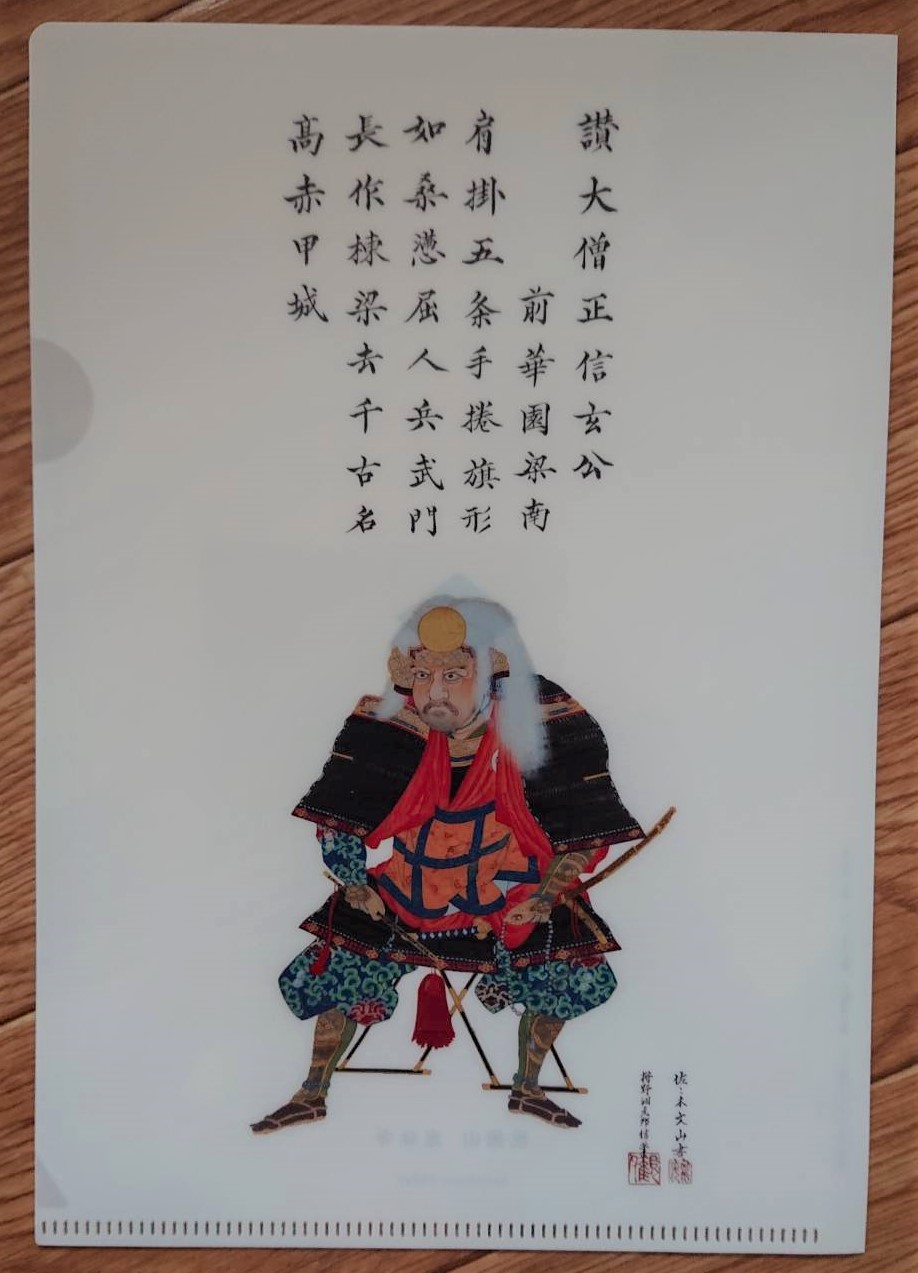 讃大僧正信玄公
前華園梁南
肩掛五条手捲旗形
如桑屈人兵武門
長作棟梁去千古名
髙赤甲城
佐々木文山書
狩野洞元邦信筆